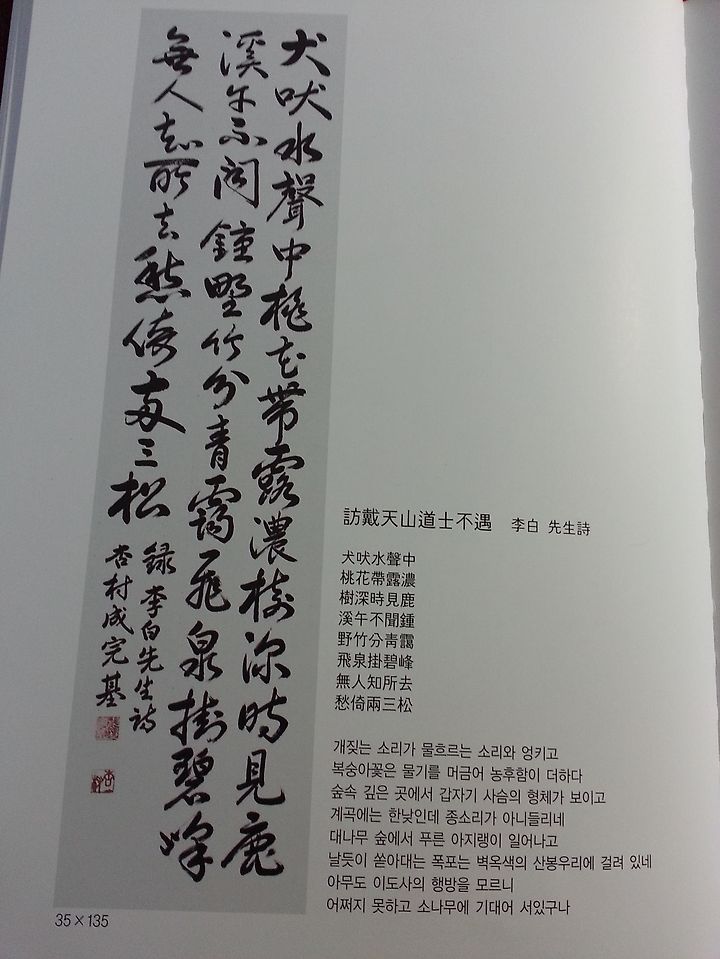 犬吠水聲中桃花帶露濃樹深時見鹿
溪午不聞鐘野竹分青靄飛泉掛碧峰
無人知所去愁倚兩三松
録李白先生詩
杏村成完基
訪戴天山道士不遇 李白 先生詩
犬吠水聲中
桃花帶露濃
樹深時見鹿
溪午不聞鍾
野竹分靑靄
飛泉掛碧峰
無人知所去
愁倚兩三松
개짖는 소리가 물흐르는 소리와 엉키고
복숭아꽃은 물기를 머금어 농후함이 더하다
숲속 깊은 곳에서 갑자기 사슴의 형체가 보이고
계곡에는 한낮인데 종소리가 아니들리네
대나무 숲에서 푸른 아지랭이 일어나고
날듯이 쏟아대는 폭포는 벽옥색의 산봉우리에 걸려 있네
아무도 이도사의 행방을 모르니
어쩌지 못하고 소나무에 기대어 서있구나
35×135